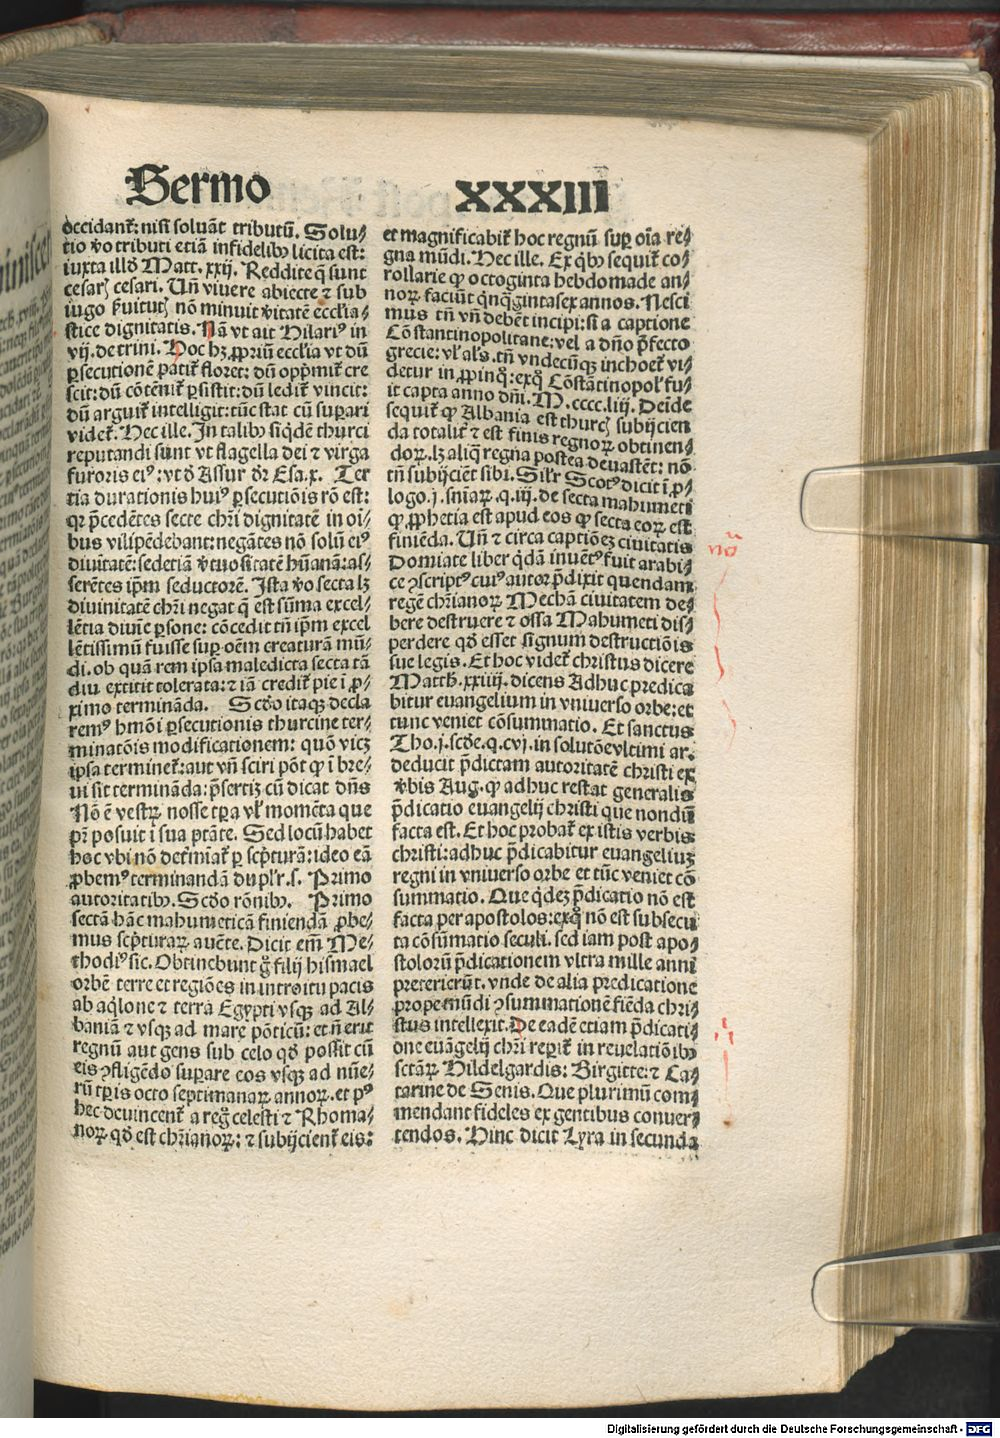 Sermo XXXIII
occidant̄: nisi soluāt tributū. Solu⸗
tio v̄o tributi etiā infidelibꝰ licita est:
iuxta illd̄ Matt. xxij. Reddite q̄ sunt
cesarꝭ cesari. Un̄ viuere abiecte ⁊ sub
iugo ẜuitutꝭ nō minuit v̄itatē eccl̄ia⸗
stice dignitatis. Nā vt ait Hilariꝰ in
vij. de trini. Hoc hꝫ ꝓpriū eccl̄ia vt dū
ꝑsecutionē patit̄ floret: dū opp̄mit̄ cre
scit: dū cōtēnit̄ ꝑsistit: dū ledit̄ vincit:
dū arguit̄ intelligit: tūc stat cū suꝑari
videt̄. Hec ille. In talibꝰ siq̄dē thurci
reputandi sunt vt flagella dei ⁊ virga
furoris eiꝰ: vt d̄ Assur dr̄ Esa. x. Ter
tia durationis huiꝰ ꝑsecutiōis rō est:
qꝛ p̄cedētes secte chr̄i dignitatē in oī⸗
bus vilipēdebant: negātes nō solū eiꝰ
diuitatē: sed etiā v̓tuositatē hūanā: as⸗
serētes ip̄m seductorē. Ista v̄o secta lꝫ
diuinitatē chr̄i negat q̄ est sūma excel⸗
lētia diuīe ꝑsone: cōcedit tn̄ ip̄m excel
lētissimū fuisse suꝑ oēm creaturā mū⸗
di. ob quā rem ipsa maledicta secta tā
diu extitit tolerata: ⁊ iā credit̄ pie ī ꝓ⸗
ximo termināda. Scd̄o itaqꝫ decla
remꝰ hmōi ꝑsecutionis thurcine ter⸗
minatōis modificationem: quō vicꝫ
ipsa terminet̄: aut vn̄ sciri pōt ꝙ ī bre⸗
ui sit termināda: p̄sertiꝫ cū dicat dn̄s
Nō ē vestrꝝ nosse tꝑa vl̓ momēta que
pr̄ posuit ī sua ptāte. Sed locū habet
hoc vbi nō det̓mīat̄ ꝑ scp̄turā: ideo eā
ꝓbemꝰ terminandā dupl̓r. s. Primo
autoritatibꝰ. Scd̄o rōnibꝰ. Primo
sectā hāc mahumeticā finiendā ꝓbe⸗
mus scp̄turaꝝ auc̄te. Dicit em̄ Me⸗
thodiꝰ sic. Obtinebunt g̊ filij hismael
orbē terre et regiōes in introitu pacis
ab aq̄lone ⁊ terra Egypti vsqꝫ ad Al⸗
baniā ⁊ vsqꝫ ad mare pōticū: et n̄ erit
regnū aut gens sub celo qd̄ possit cū
eis ꝯfligēdo suꝑare eos vsqꝫ ad nūe⸗
rū tꝑis octo septimanaꝝ annoꝝ. et pꝰ
hec deuincent̄ a reg̓ celesti ⁊ Rhoma⸗
noꝝ qd̄ est chr̄ianoꝝ: ⁊ subijcient̄ eis:
et magnificabit̄ hoc regnū suꝑ oīa re⸗
gna mūdi. Hec ille. Ex qͥbꝰ sequit̄ co⸗
rollarie ꝙ octoginta hebdomade an⸗
noꝝ faciūt qͥnqͣgintasex annos. Nesci
mus tn̄ vn̄ debēt incipi: si a captione
Cōstantinopolitane: vel a dn̄o p̄fecto
grecie: vl̓ al̓s. tn̄ vndecūqꝫ inchoet̄ vi⸗
detur in ꝓpinqͦ: exqͦ Cōstātinopol̓ fu⸗
it capta anno dn̄i. M. cccc. liij. Deīde
sequit̄ ꝙ Albania est thurcꝭ subijcien
da totalit̄ ⁊ est finis regnoꝝ obtinen⸗
doꝝ. lꝫ aliq̄ regna postea deuastēt: nō
tn̄ subijciēt sibi. Sil̓r Scotꝰ dicit ī ꝓ⸗
logo. j. sn̄iaꝝ. q. iij. de secta mahumeti
ꝙ ꝓphetia est apud eos ꝙ secta eoꝝ est
finiēda. Un̄ ⁊ circa captiōeꝫ ciuitatis
Domiate liber q̇dā inuētꝰ fuit arabi⸗
ce ꝯscriptꝰ cuiꝰ autor p̄dixit quendam
regē chr̄ianoꝝ Mechā ciuitatem de⸗
bere destruere ⁊ ossa Mahumeti dis⸗
perdere qd̄ esset signum destructiōis
sue legis. Et hoc videt̄ christus dicere
Matth. xxiiij. dicens Adhuc predica
bitur euangelium in vniuerso orbe: et
tunc veniet cōsummatio. Et sanctus
Tho. j. scd̄e. q. cvj. in solutōe vltimi ar.
deducit p̄dictam autoritatē christi ex
v̓bis Aug. ꝙ adhuc restat generalis
p̄dicatio euangelij christi que nondū
facta est. Et hoc probat̄ ex istis verbis
christi: adhuc p̄dicabitur euangeliuꝫ
regni in vniuerso orbe et tūc veniet cō
summatio. Que qͥdeꝫ p̄dicatio nō est
facta per apostolos: exqͦ nō est subsecu
ta cōsūmatio seculi. sed iam post apo⸗
stolorū p̄dicationem vltra mille anni
preterierūt. vnde de alia predicatione
prope mūdi ꝯsummationē fiēda chri⸗
stus intellexit. De eadē etiam p̄dicati⸗
one euāgelij chr̄i reꝑit̄ in reuelatiōibꝰ
sctāꝝ Hildelgardis: Birgitte: ⁊ Ca⸗
tarine de Senis. Que plurimū com⸗
mendant fideles ex gentibus conuer⸗
tendos. Hinc dicit Lyra in secunda
Digitalisierung gefördert durch die Deutsche Forschungsgemeinschaft - DFG